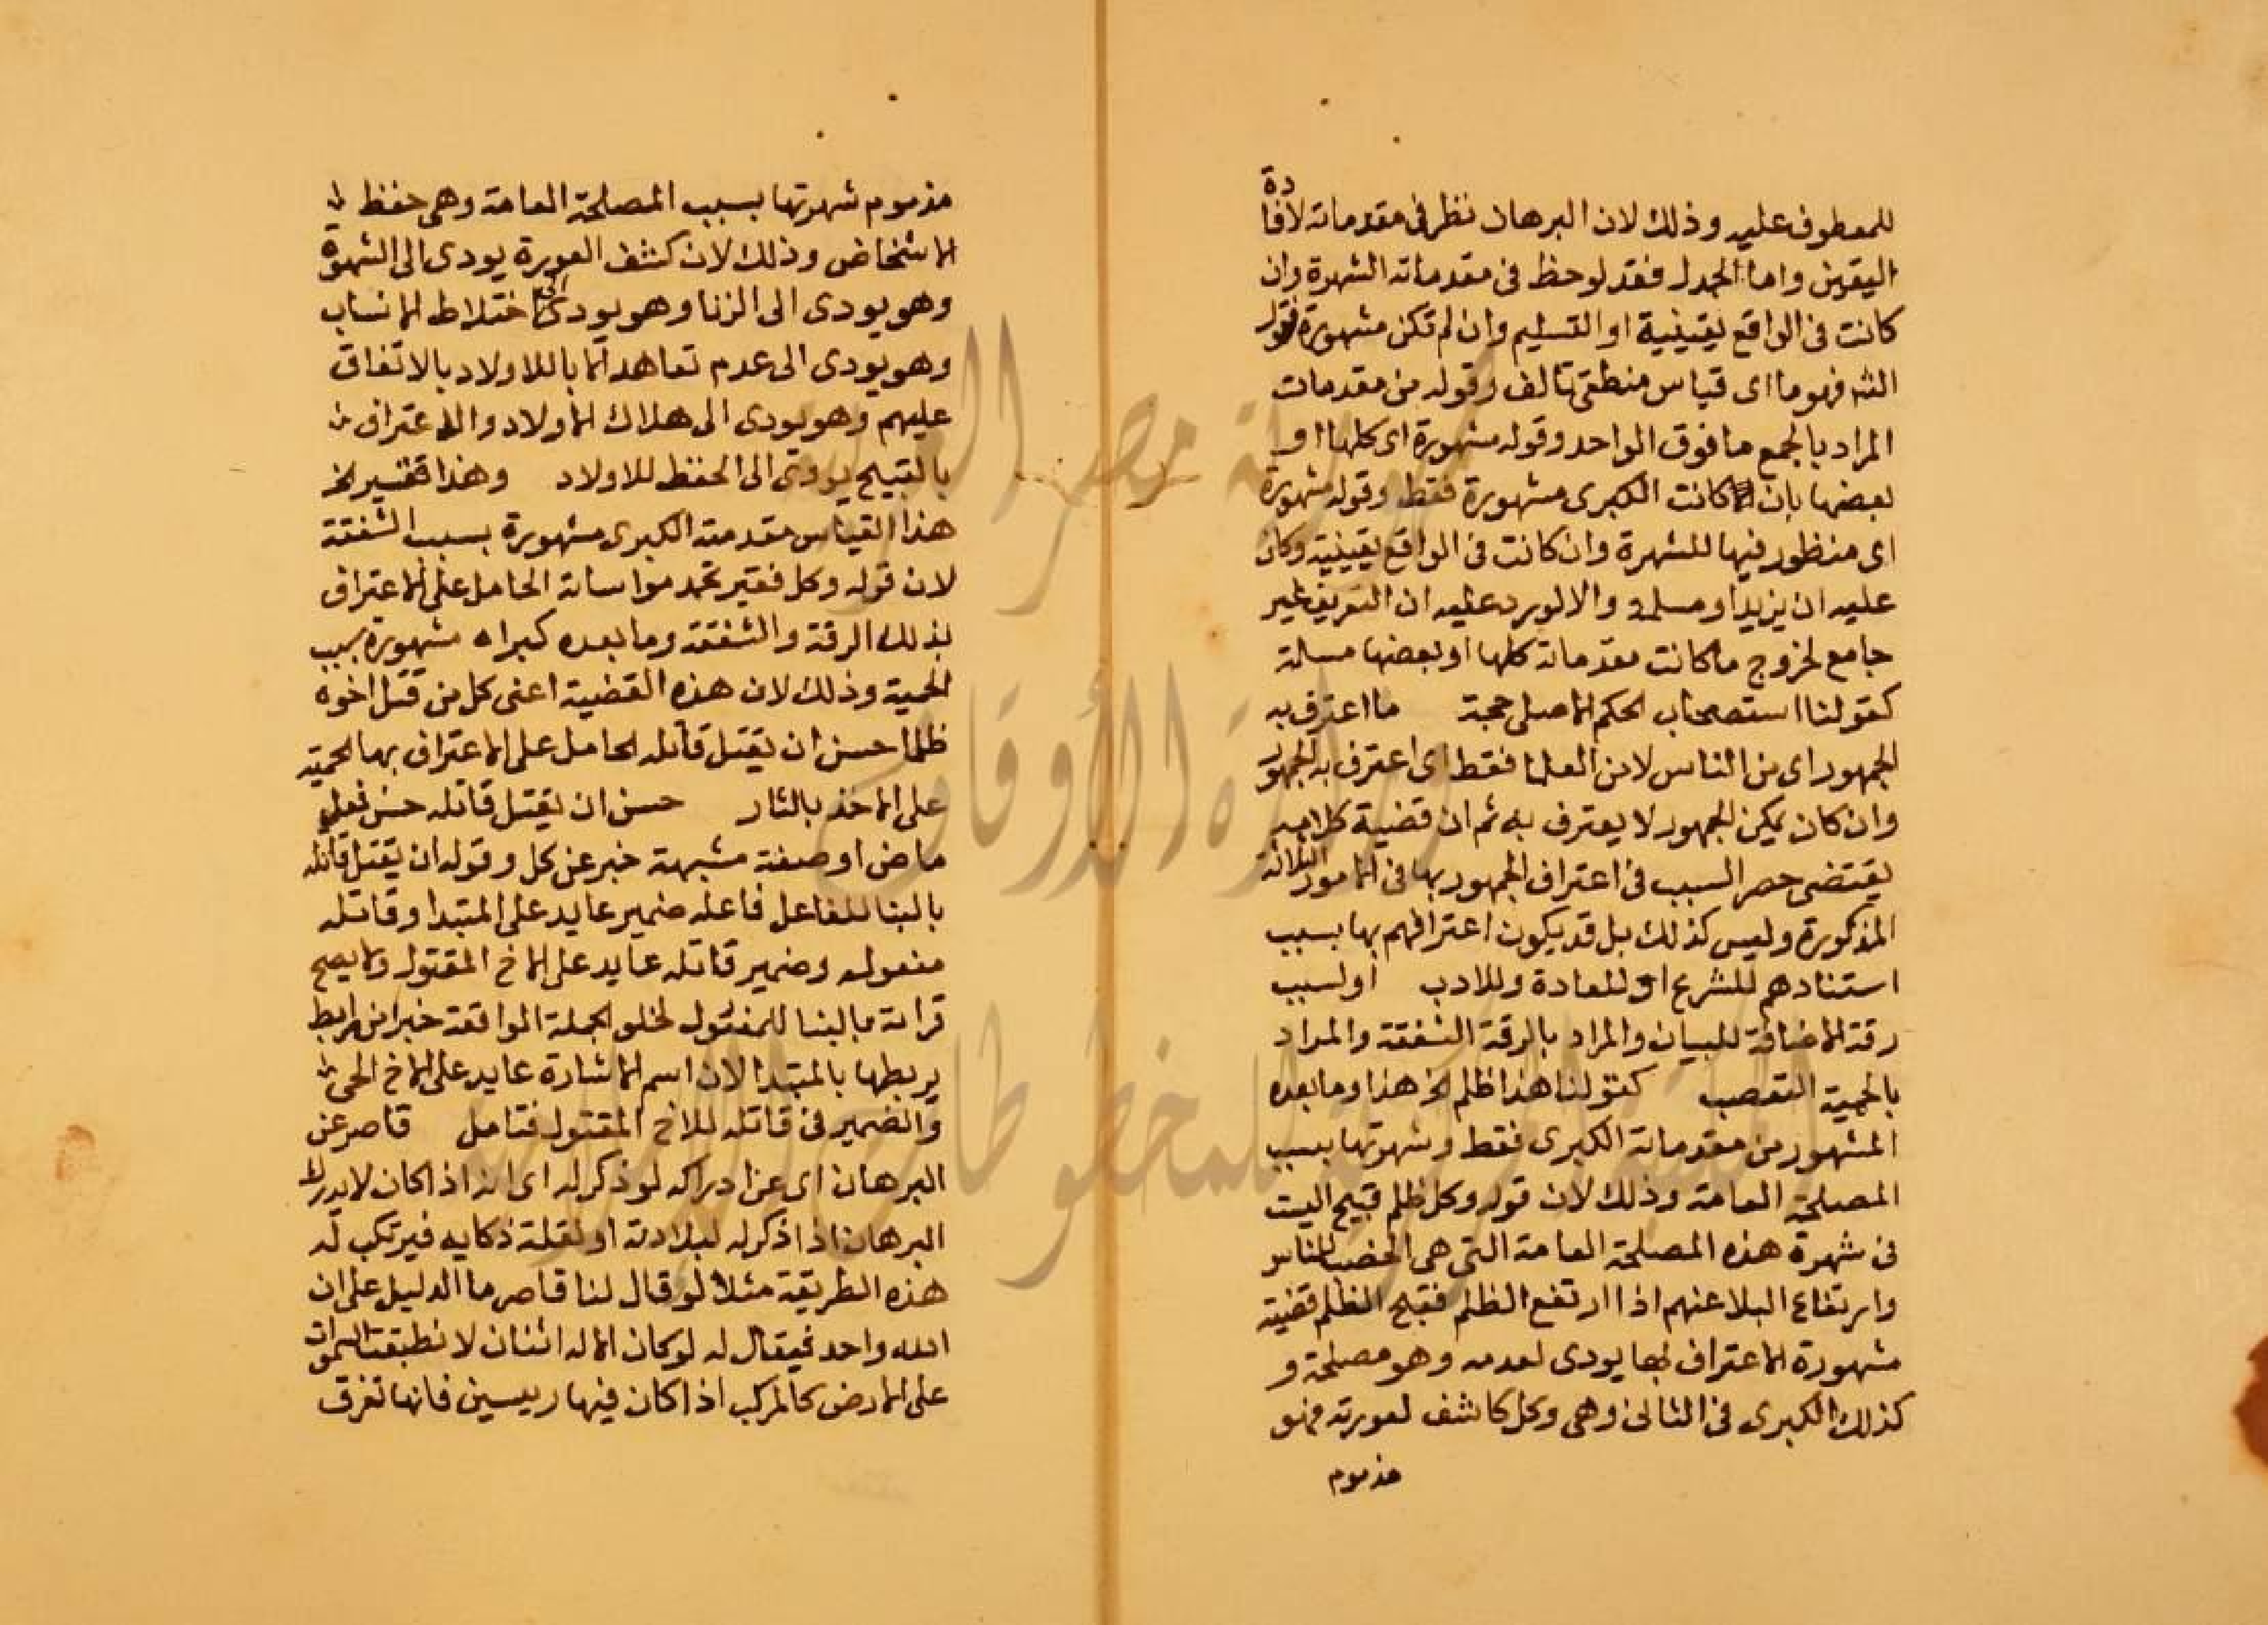 للمعطوف عليه وذلك لان البرهان نظر في مقدماته لافادة
اليقين واما الجدل فقد لوحظ في مقدماته الشهرة وان
كانت في الواقع يقينية او التسليم وان لم تكن مشهورة فقول
الشه فهو ما اى قياس منطقي تالف وقوله من مقدمات
المراد بالجمع ما فوق الواحد وقوله مشهورة اى كلها او
بعضها بان كانت الكبرى مشهورة فقط وقوله مشهورة
اى منظور فيها للشهرة وان كانت في الواقع يقينية وكان
عليه ان يزيد او مسلمة والا لورد عليه ان التعريف غير
جامع لخروج ما كانت مقدماته كلها او بعضها مسلمة
كقولنا استصحاب الحكم الاصلي حجة ما اعترف به
الجمهور اى من الناس لا من العلما فقط اى اعترف به الجمهور
وان كان يمكن الجمهور لا يعترف به ثم ان قضية كلامه
يقتضي حصر السبب في اعتراف الجمهور بها في الامور الثلاثة
المذكورة وليس كذلك بل قد يكون اعترافهم بها بسبب
استنادهم للشرع او للعادة وللادب او لسبب
رقة الاضافة للبيان والمراد بالرقة الشفقة والمراد
بالحمية التعصب كقولنا هذا ظلم الخ هذا وما بعده
المشهور من مقدماته الكبرى فقط وشهرتها بسبب
المصلحة العامة وذلك لان قوله وكل ظلم قبيح اليست
في شهرة هذه المصلحة العامة التى هى الخصب للناس
وارتفاع البلا عنهم اذا ارتفع الظلم فقبح الظلم قضية
مشهورة الاعتراف بها يودى لعدمه وهو مصلحة و
كذلك الكبرى في الثانى وهى وكل كاشف لعورته فهو
مذموم
مذموم شهرتها بسبب المصلحة العامة وهى حفظ
الاشخاص وذلك لان كشف العورة يودى الى الشهوة
وهو يودى الى الزنا وهو يودى الى اختلاط الانساب
وهو يودى الى عدم تعاهد الابا للاولاد بالاتفاق
عليهم وهو يودى الى هلاك الاولاد والاعتراف
بالقبيح يودى الى الحفظ للاولاد وهذا فقير الخ
هذا القياس مقدمته الكبرى مشهورة بسبب الشفقة
لان قوله وكل فقير تحمد مواساته الحامل على الاعتراف
بذلك الرقة والشفقة وما بعده كبراه مشهورة بسبب
الحمية وذلك لان هذه القضية اعنى كل من قتل اخوه
ظلما حسن ان يقتل قاتله الحامل على الاعتراف بها الحمية
على الاخذ بالثار حسن ان يقتل قاتله حسن فعل
ماض او صفة مشبهة خبر عن كل وقوله ان يقتل قاتله
بالبنا للفاعل فاعله ضمير عايد على المبتدا وقاتله
مفعوله وضمير قاتله عايد على الاخ المقتول ولا يصح
قراته بالبنا للمفعول لخلو الجملة الواقعة خبرا من رابط
يربطها بالمبتدا لان اسم الاشارة عايد على الاخ الحى
والضمير في قاتله للاخ المقتول فتامل قاصر عن
البرهان اى عن ادراكه لو ذكر له اى انه اذا كان لا يدرك
البرهان اذا ذكر له لبلادته او لقلة ذكايه فيرتكب له
هذه الطريقة مثلا لو قال لنا قاصر ما الدليل على ان
الله واحد فيقال له لو كان الاله اثنان لانطبقت السموات
على الارض كالمركب اذا كان فيها رييسين فانها تغرق